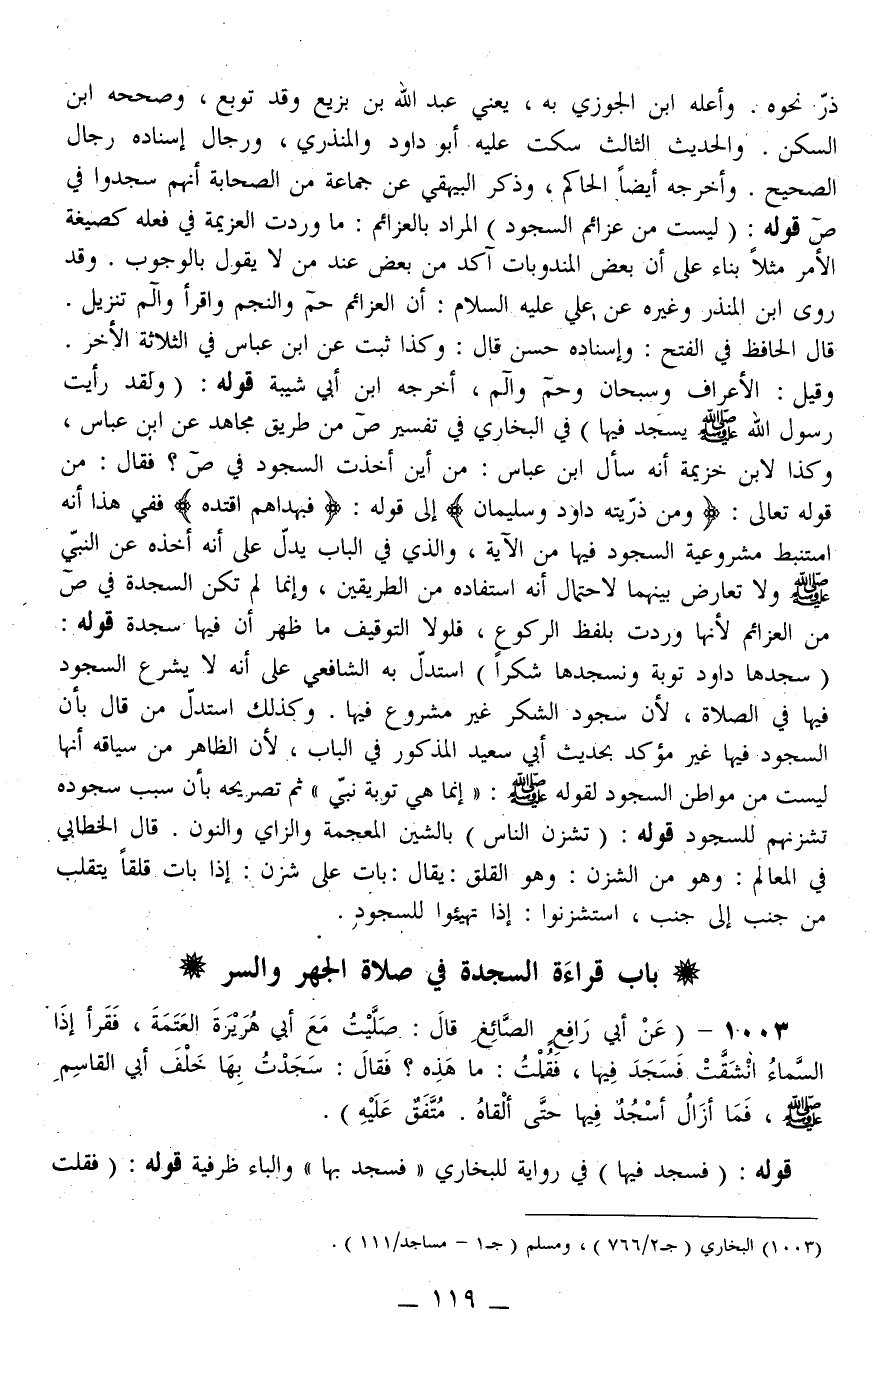 ذرّ نحوه . وأعله ابن الجوزي به ، يعني عبد الله بن بزيع وقد توبع ، وصححه ابن
السكن . والحديث الثالث سكت عليه أبو داود والمنذري ، ورجال إسناده رجال
الصحيح . وأخرجه أيضاً الحاكم ، وذكر البيهقي عن جماعة من الصحابة أنهم سجدوا في
صۤ قوله : ( ليست من عزائم السجود ) المراد بالعزائم : ما وردت العزيمة في فعله كصيغة
الأمر مثلاً بناء على أن بعض المندوبات آكد من بعض عند من لا يقول بالوجوب . وقد
روى ابن المنذر وغيره عن علي عليه السلام : أن العزائم حمۤ والنجم واقرأ والۤم تنزيل .
قال الحافظ في الفتح : وإسناده حسن قال : وكذا ثبت عن ابن عباس في الثلاثة الأخر .
وقيل : الأعراف وسبحان وحمۤ والۤم ، أخرجه ابن أبي شيبة قوله : ( ولقد رأيت
رسول الله ﷺ يسجد فيها ) في البخاري في تفسير صۤ من طريق مجاهد عن ابن عباس ،
وكذا لابن خزيمة أنه سأل ابن عباس : من أين أخذت السجود في صۤ ؟ فقال : من
قوله تعالى : ﴿ ومن ذرّيته داود وسليمان ﴾ إلى قوله : ﴿ فبهداهم اقتده ﴾ ففي هذا أنه
استنبط مشروعية السجود فيها من الآية ، والذي في الباب يدلّ على أنه أخذه عن النبيّ
ﷺ ولا تعارض بينهما لاحتمال أنه استفاده من الطريقين ، وإنما لم تكن السجدة في صۤ
من العزائم لأنها وردت بلفظ الركوع ، فلولا التوقيف ما ظهر أن فيها سجدة قوله :
( سجدها داود توبة ونسجدها شكراً ) استدلّ به الشافعي على أنه لا يشرع السجود
فيها في الصلاة ، لأن سجود الشكر غير مشروع فيها . وكذلك استدلّ من قال بأن
السجود فيها غير مؤكد بحديث أبي سعيد المذكور في الباب ، لأن الظاهر من سياقه أنها
ليست من مواطن السجود لقوله ﷺ : « إنما هي توبة نبيّ » ثم تصريحه بأن سبب سجوده
تشزنهم للسجود قوله : ( تشزن الناس ) بالشين المعجمة والزاي والنون . قال الخطابي
في المعالم : وهو من الشزن : وهو القلق : يقال : بات على شزن : إذا بات قلقاً يتقلب
من جنب إلى جنب ، استشزنوا : إذا تهيئوا للسجود .
❋ باب قراءة السجدة في صلاة الجهر والسر ❋
١٠٠٣ – ( عَنْ أبي رَافِعٍ الصَّائِغِ قالَ : صَلَّيْتُ مَعَ أبي هُرَيْرَةَ العَتَمَةَ ، فَقَرأ إذَا
السَّماءُ انْشَقَّتْ فَسَجَدَ فِيها ، فَقُلْتُ : ما هَذِه ؟ فَقالَ : سَجَدْتُ بِهَا خَلْفَ أبي القاسِمِ
ﷺ ، فَمَا أزَالُ أسْجُدُ فِيها حتَّى ألْقاهُ . مُتَّفَقٌ عَلَيْهِ ) .
قوله : ( فسجد فيها ) في رواية للبخاري « فسجد بها » والباء ظرفية قوله : ( فقلت
(١٠٠٣) البخاري ( جـ٧٦٦/٢ ) ، ومسلم ( جـ١ – مساجد/١١١ ) .
– ١١٩ –